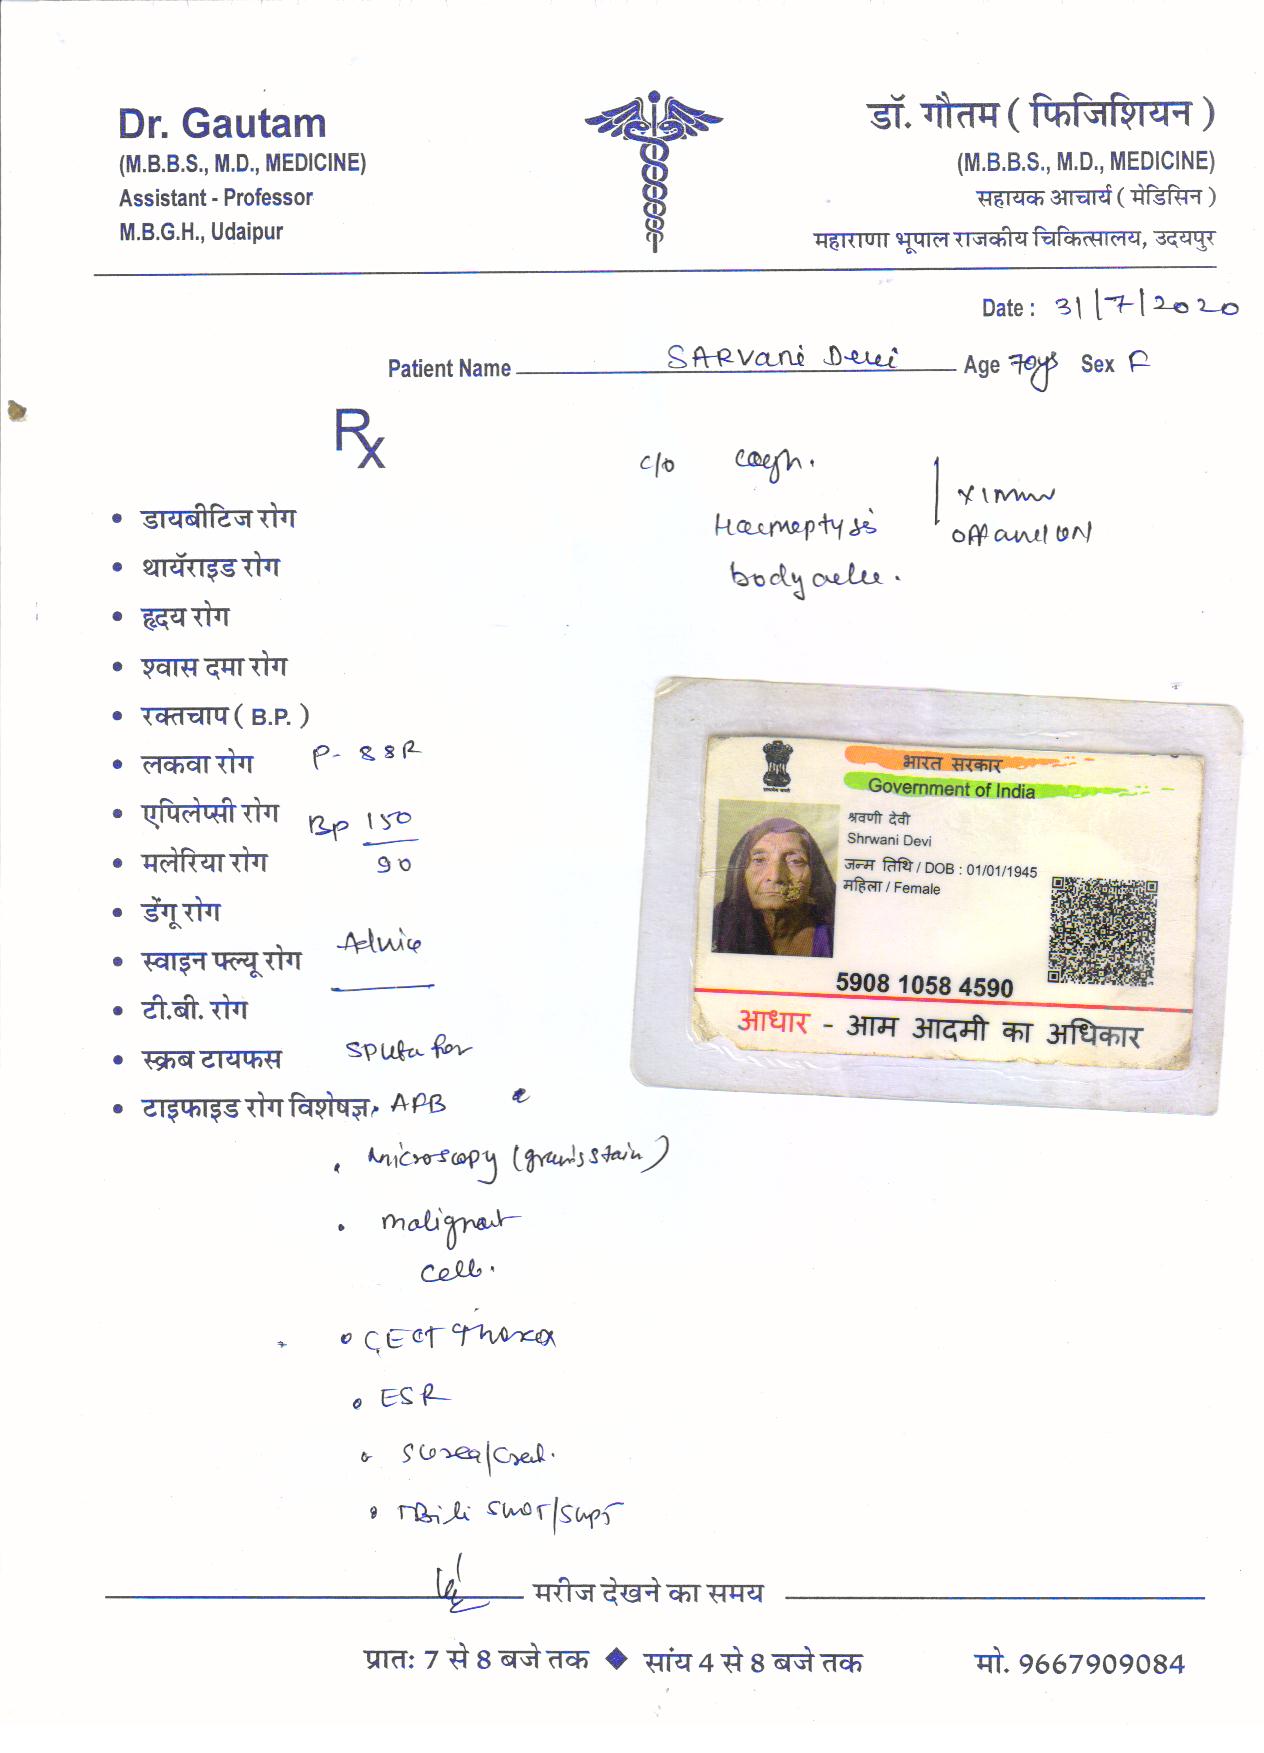 Dr. Gautam
(M.B.B.S., M.D., MEDICINE)
Assistant - Professor
M.B.G.H., Udaipur
डॉ. गौतम ( फिजिशियन )
(M.B.B.S., M.D., MEDICINE)
सहायक आचार्य ( मेडिसिन )
महाराणा भूपाल राजकीय चिकित्सालय, उदयपुर
Date : 31/7/2020
Patient Name SARVani Devi Age 70ys Sex F
Rx
c/o cough.
Haemeptysis
off and ON
body
• डायबीटिज रोग
• थायॅराइड रोग
• हृदय रोग
• श्वास दमा रोग
• रक्तचाप ( B.P. )
• लकवा रोग
• एपिलेप्सी रोग
• मलेरिया रोग
• डेंगू रोग
• स्वाइन फ्ल्यू रोग
• टी.बी. रोग
• स्क्रब टायफस
• टाइफाइड रोग विशेषज्ञ
P- 88R
Bp 150
90
Advice
Sputa for
AFB
• Microscopy (gram's stain)
• malignant
cells.
• CECT Thorax
• ESR
• S Urea/Creat.
• TBili SGOT/SGPT
भारत सरकार
Government of India
श्रवणी देवी
Shrwani Devi
जन्म तिथि / DOB : 01/01/1945
महिला / Female
5908 1058 4590
आधार - आम आदमी का अधिकार
मरीज देखने का समय
प्रातः 7 से 8 बजे तक ◆ सांय 4 से 8 बजे तक मो. 9667909084